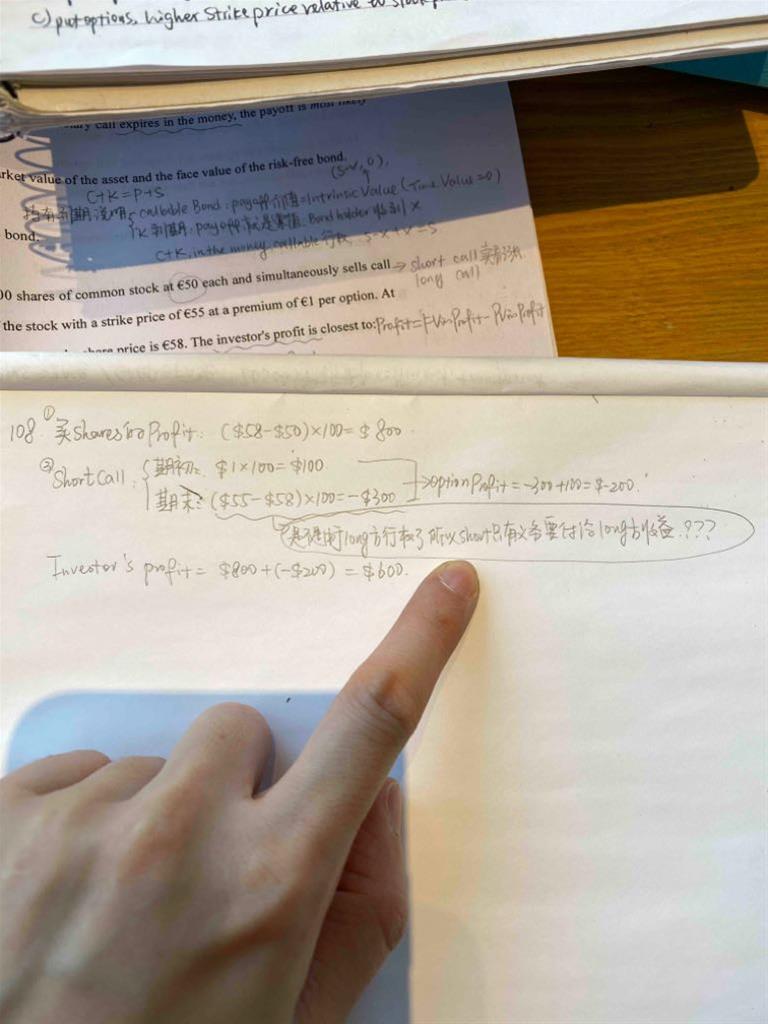 c) put options, higher strike price relative to stock
call expires in the money, the payoff is most likely
rket value of the asset and the face value of the risk-free bond.
C+K=P+S
callable Bond: payoff价值=Intrinsic Value (Time Value=0)
bond.
C+K, in the money, callable 行权
00 shares of common stock at €50 each and simultaneously sells call → short call
long call
the stock with a strike price of €55 at a premium of €1 per option. At
price is €58. The investor's profit is closest to: Profit=
108. ① 买shares的Profit: ($58-$50)×100=$800.
② Short Call: 期初: $1×100=$100
期末: ($55-$58)×100=-$300 → option Profit=-300+100=$-200.
是不是由于long方行权了 所以short只有义务要付给long方收益.???
Investor's profit= $800+(-$200) = $600.